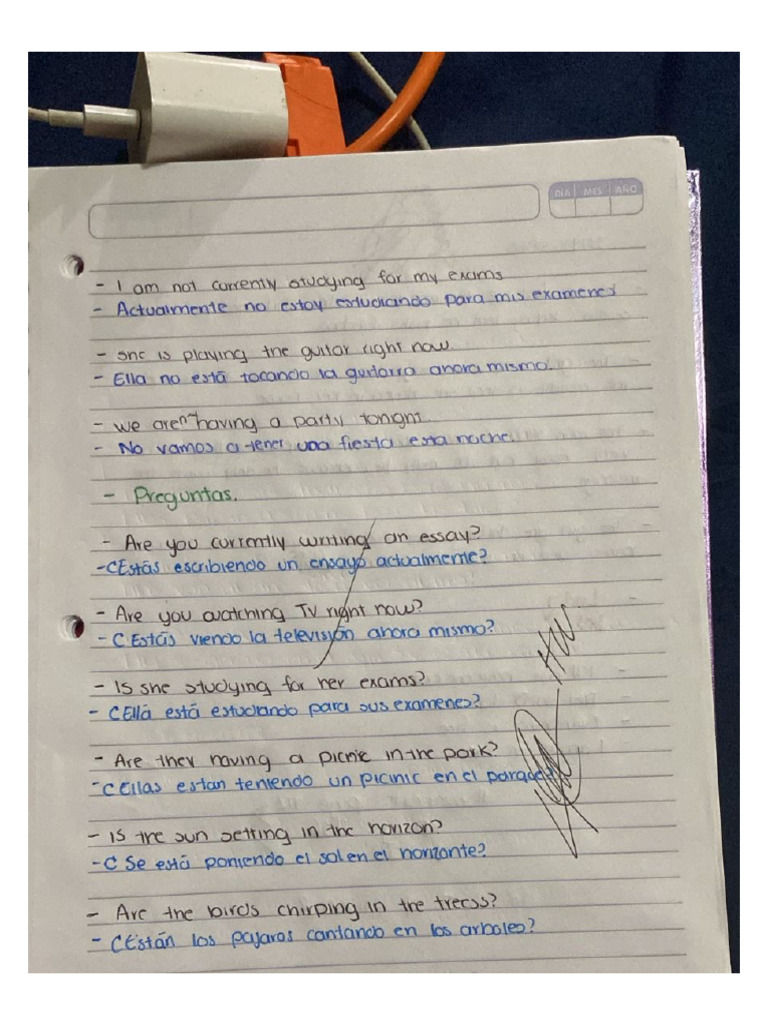 DIA MES AÑO
- I am not currently studying for my exams
- Actualmente no estoy estudiando para mis examenes
- She is playing the guitar right now.
- Ella no está tocando la guitarra ahora mismo.
- we aren't having a party tonight
- No vamos a tener una fiesta esta noche.
- Preguntas.
- Are you currently writing an essay?
- ¿Estás escribiendo un ensayo actualmente?
- Are you watching TV right now?
- ¿Estás viendo la televisión ahora mismo?
- Is she studying for her exams?
- ¿Ella está estudiando para sus examenes?
- Are they having a picnic in the park?
- ¿Ellas estan teniendo un picinic en el parque?
- Is the sun setting in the horizon?
- ¿Se está poniendo el sol en el horizonte?
- Are the birds chirping in the treess?
- ¿Están los pajaros cantando en los arboles?